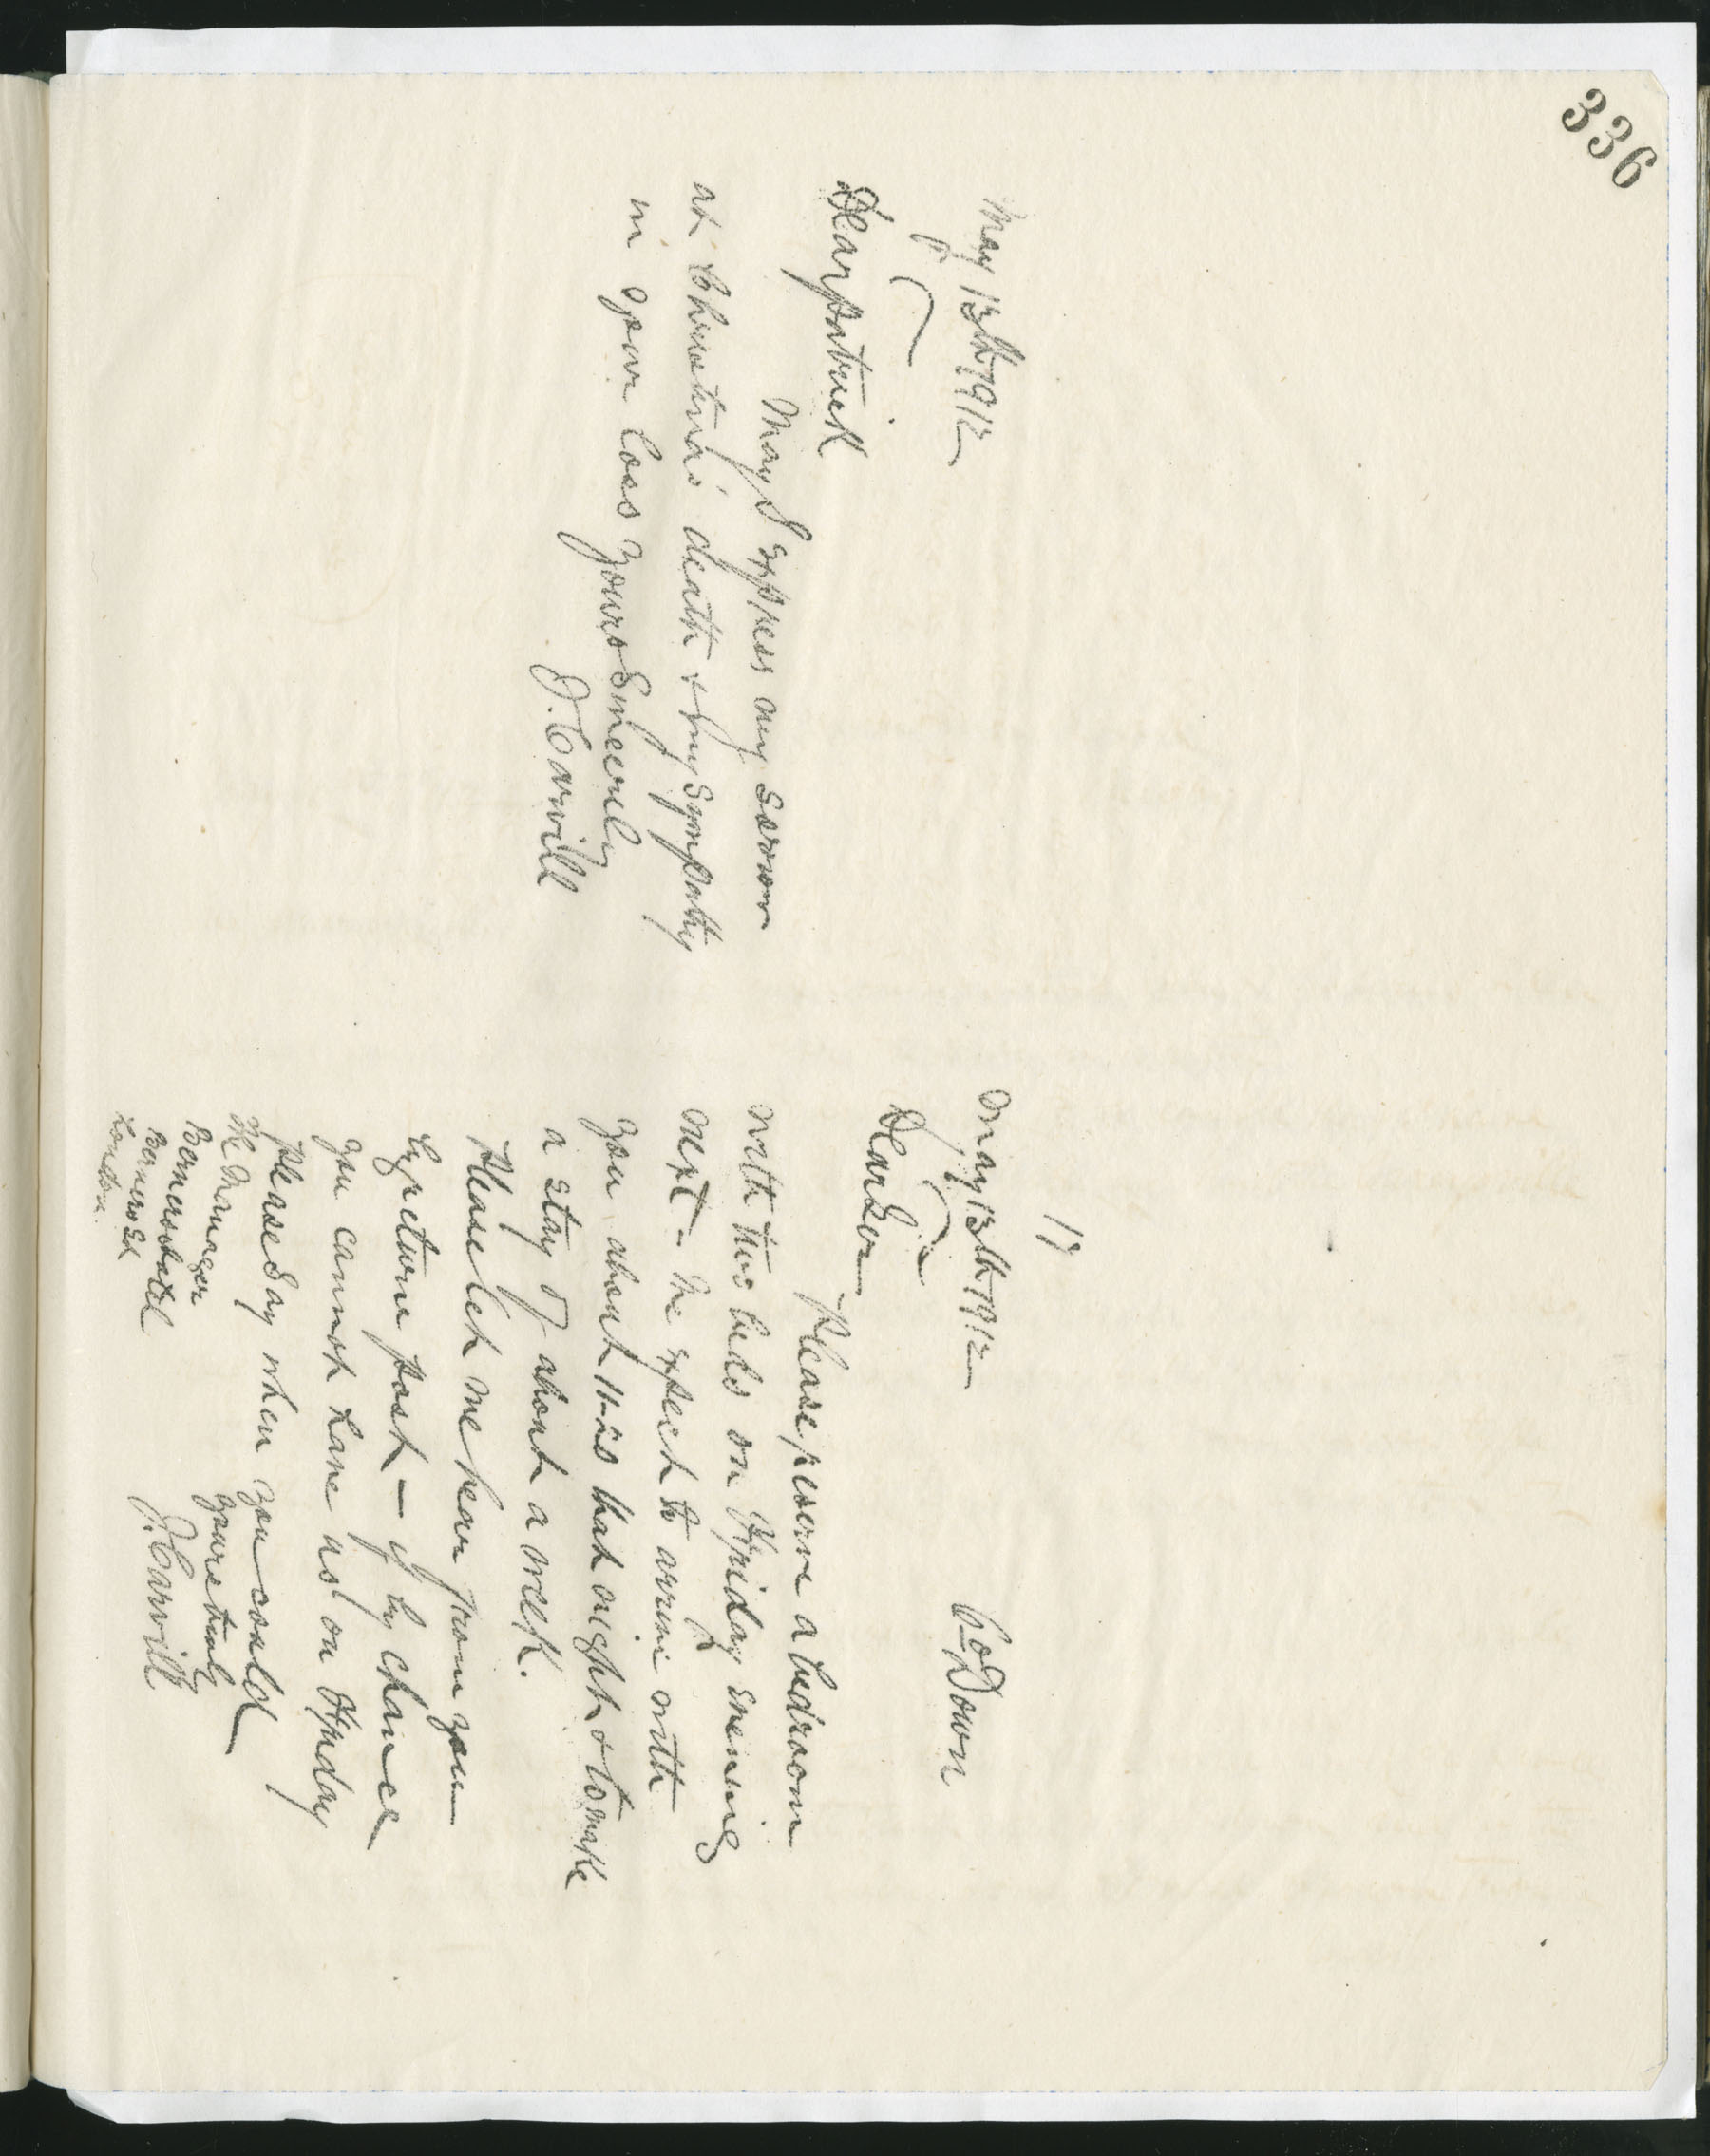 336
May 13th 1912
Dear Patrick
May I express my sorrow
at Christina's death & my sympathy
in your loss Yours Sincerely
J. Carvill
17
May 13th 1912
Co Down
Dear Sir
Please reserve a bedroom
with two beds on Friday evening
next - We expect to arrive with
you about that night & to make
a stay of about a week.
Please let me hear from you
by return post — if by chance
you cannot have us on Friday
please say when you could
Yours truly
J. Carvill
The Manager
Berners Hotel
Berners St
London.